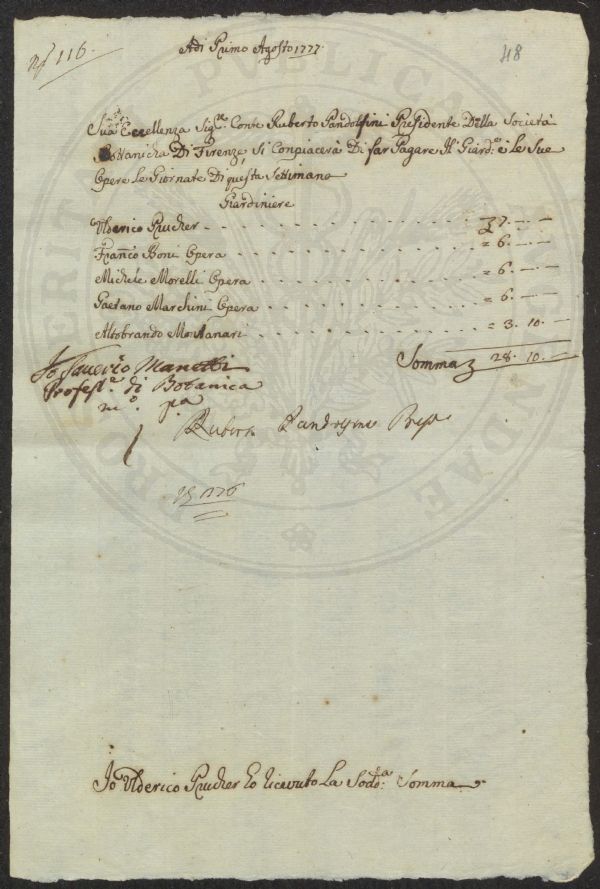 No 116.
Adi Primo Agosto 1777.
48
Sua Eccellenza Sigre. Conte Ruberto Pandolfini Presidente Della Società
Bottanicha Di Firenze, Si Conpiacerà Di far Pagare Al Giard.o e le Sue
Opere le Giornate Di questa Settimana
Giardiniere
Ulderico Prucher - . . . . . . . . . . . 7. — —
Franco Boni Opera . . . . . . . . . . . = 6. — —
Michele Morelli Opera . . . . . . . . . = 6. — —
Gaetano Marchini Opera . . . . . . . . = 6. — —
Altobrando Montanari . . . . . . . . . = 3. 10. —
Somma 28. 10. —
Io Saverio Manetti
Profess.re di Botanica
m.o p.a
Ruberto Pandolfini Pres
1776
Io Ulderico Prucher ho ricevuto La Sod.a Somma
PRO PUBLICA